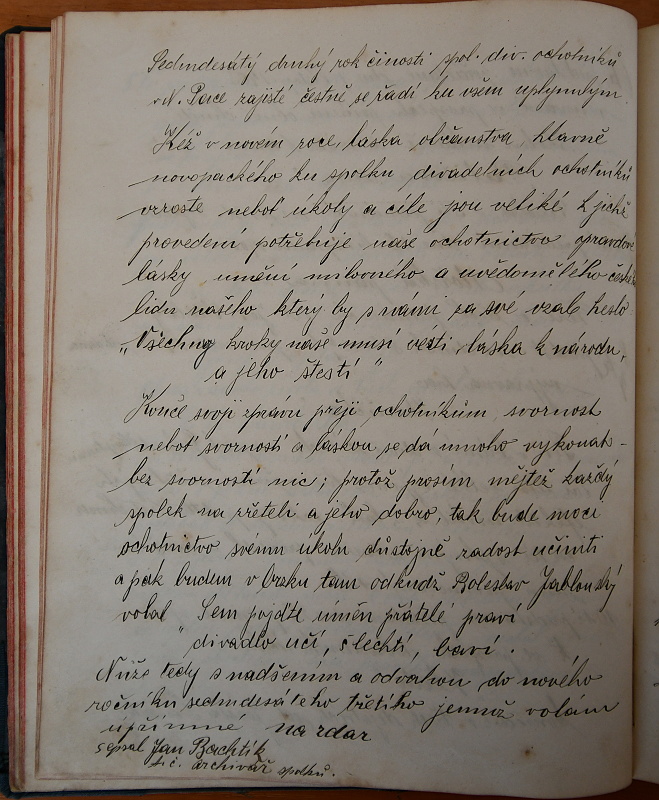 Sedmdesátý druhý rok činosti spol. div. ochotníků
v N. Pace zajisté čestně se řadí ku všem uplynulým.
Kéž v novém roce, láska občanstva, hlavně
novopackého ku spolku divadelních ochotníků
vzroste neboť úkoly a cíle jsou veliké k jichž
provedení potřebuje naše ochotnictvo opravdové
lásky umění milovného a uvědomělého
lidu našeho který by s námi za své vzal heslo
„Všechny kroky naše musí vésti láska k národu,
a jeho štestí"
Konče svoji zprávu přeji ochotníkům, svornost
neboť svorností a láskou se dá mnoho vykonat -
bez svornosti nic; protož prosím mějtež každý
spolek na zřeteli a jeho dobro, tak bude moci
ochotnictvo svému úkolu důstojně radost učiniti
a pak budem v brzku tam odkudž Boleslav Jablonský
volal „Sem pojďte umění přátelé praví
„divadlo učí, šlechtí, baví.
Nuže tedy s nadšením a odvahou do nového
ročníku sedmdesáteho třetího jemuž volám
upřímné na zdar
sepsal Jan Bachtík
t. č. archivář spolku.